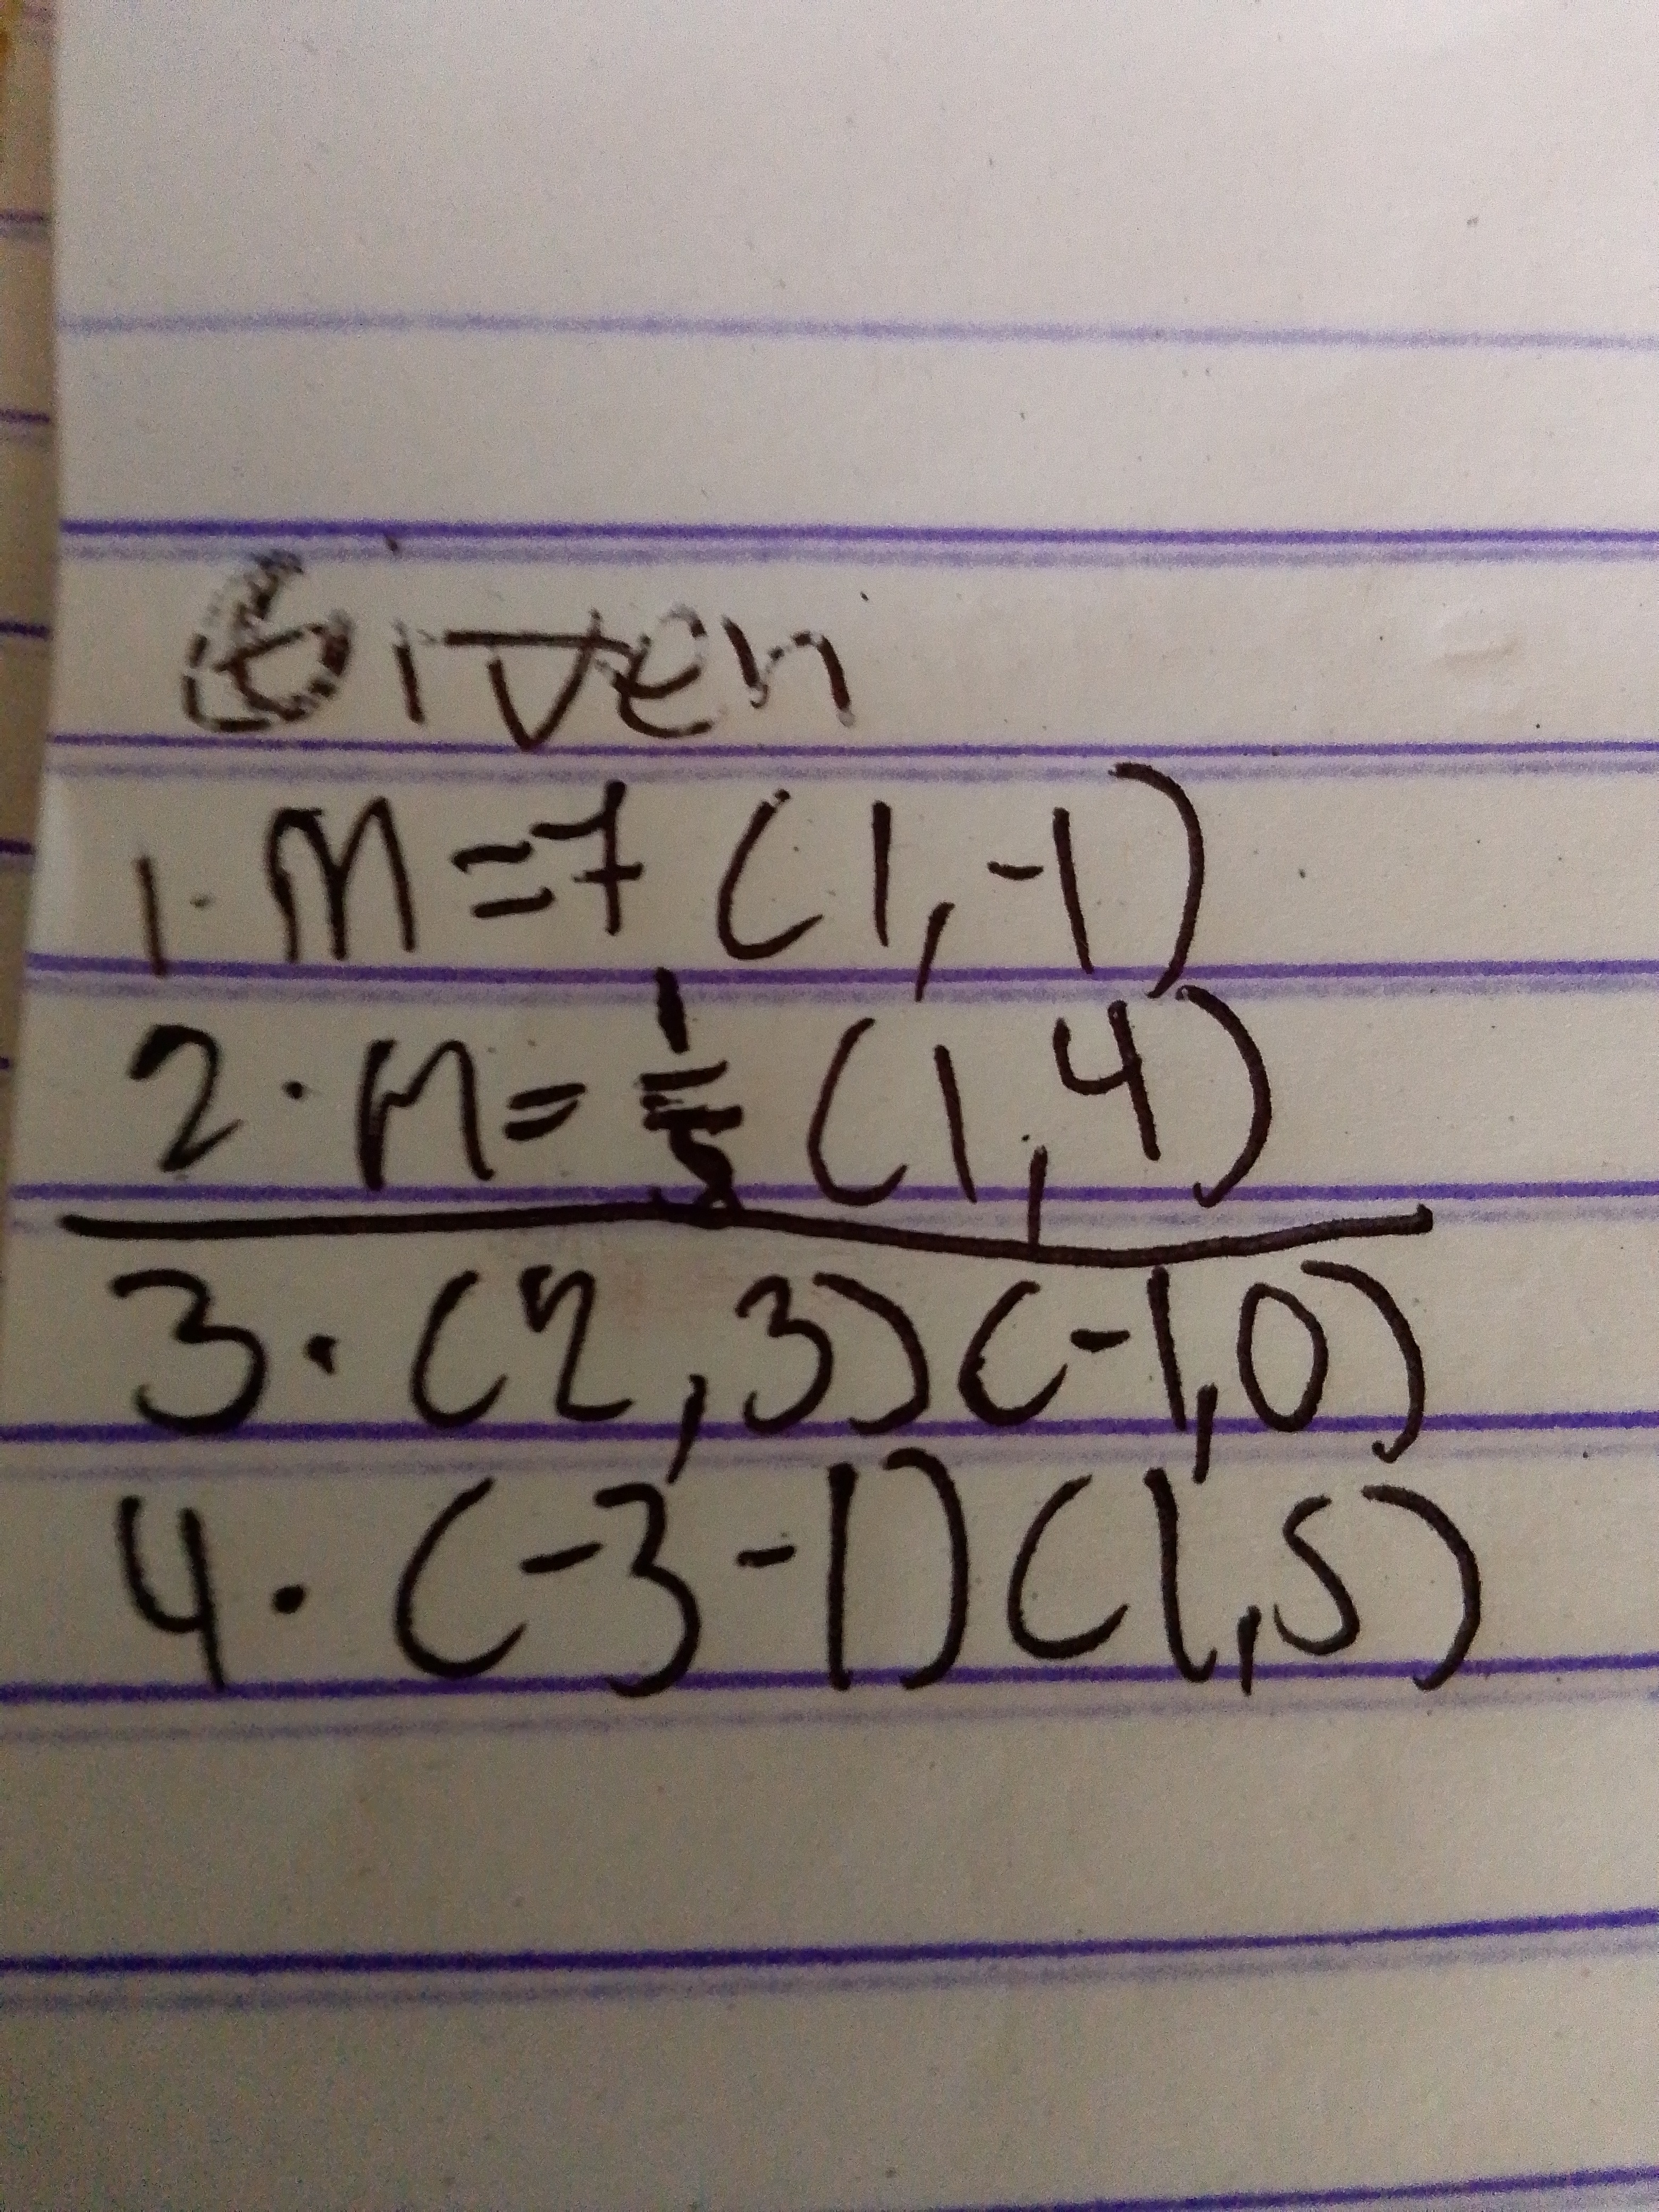 Given
1. m=7 (1,-1)
2. m= (1,4)
3. (2,3)(-1,0)
4. (-3-1)(1,5)